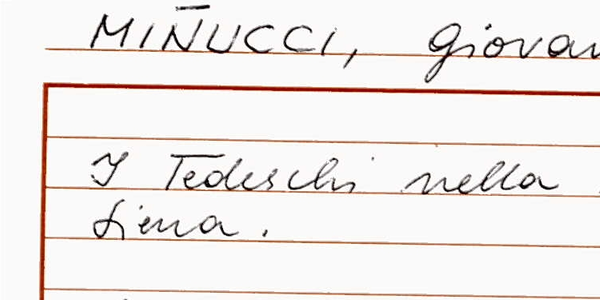 MIÑUCCI, giovan
I Tedeschi nella
Siena.